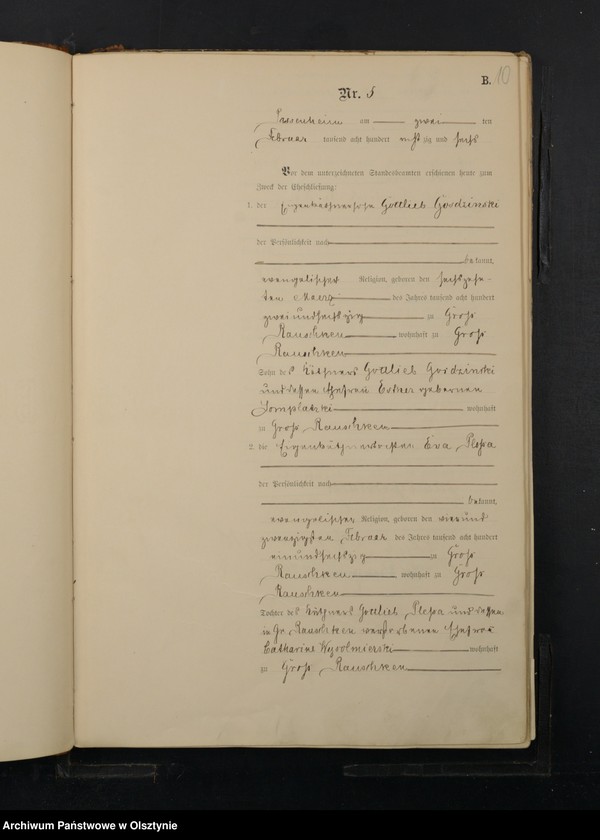 B. 10
Nr. 5
am zwei ten
Februar tausend acht hundert acht zig und sechs
Vor dem unterzeichneten Standesbeamten erschienen heute zum
Zweck der Eheschließung:
1. der Eigenkäthnersohn Gottlieb Gosdzinski
der Persönlichkeit nach
bekannt,
evangelischer Religion, geboren den sechszehn-
ten Maerz des Jahres tausend acht hundert
zweiundsechszig zu Groß
Rauschken wohnhaft zu Groß
Rauschken
Sohn des Käthners Gottlieb Gosdzinski
und dessen Ehefrau Esther geborenen
Somplatzki wohnhaft
zu Groß Rauschken
2. die Eva Plessa
der Persönlichkeit nach
bekannt,
evangelischer Religion, geboren den vierund
zwanzigsten Februar des Jahres tausend acht hundert
einundsechszig zu Groß
Rauschken wohnhaft zu Groß
Rauschken
Tochter des Käthners Gottlieb Plessa und dessen
in Gr. Rauschken verstorbenen Ehefrau
Catharine wohnhaft
zu Groß Rauschken
Archiwum Państwowe w Olsztynie